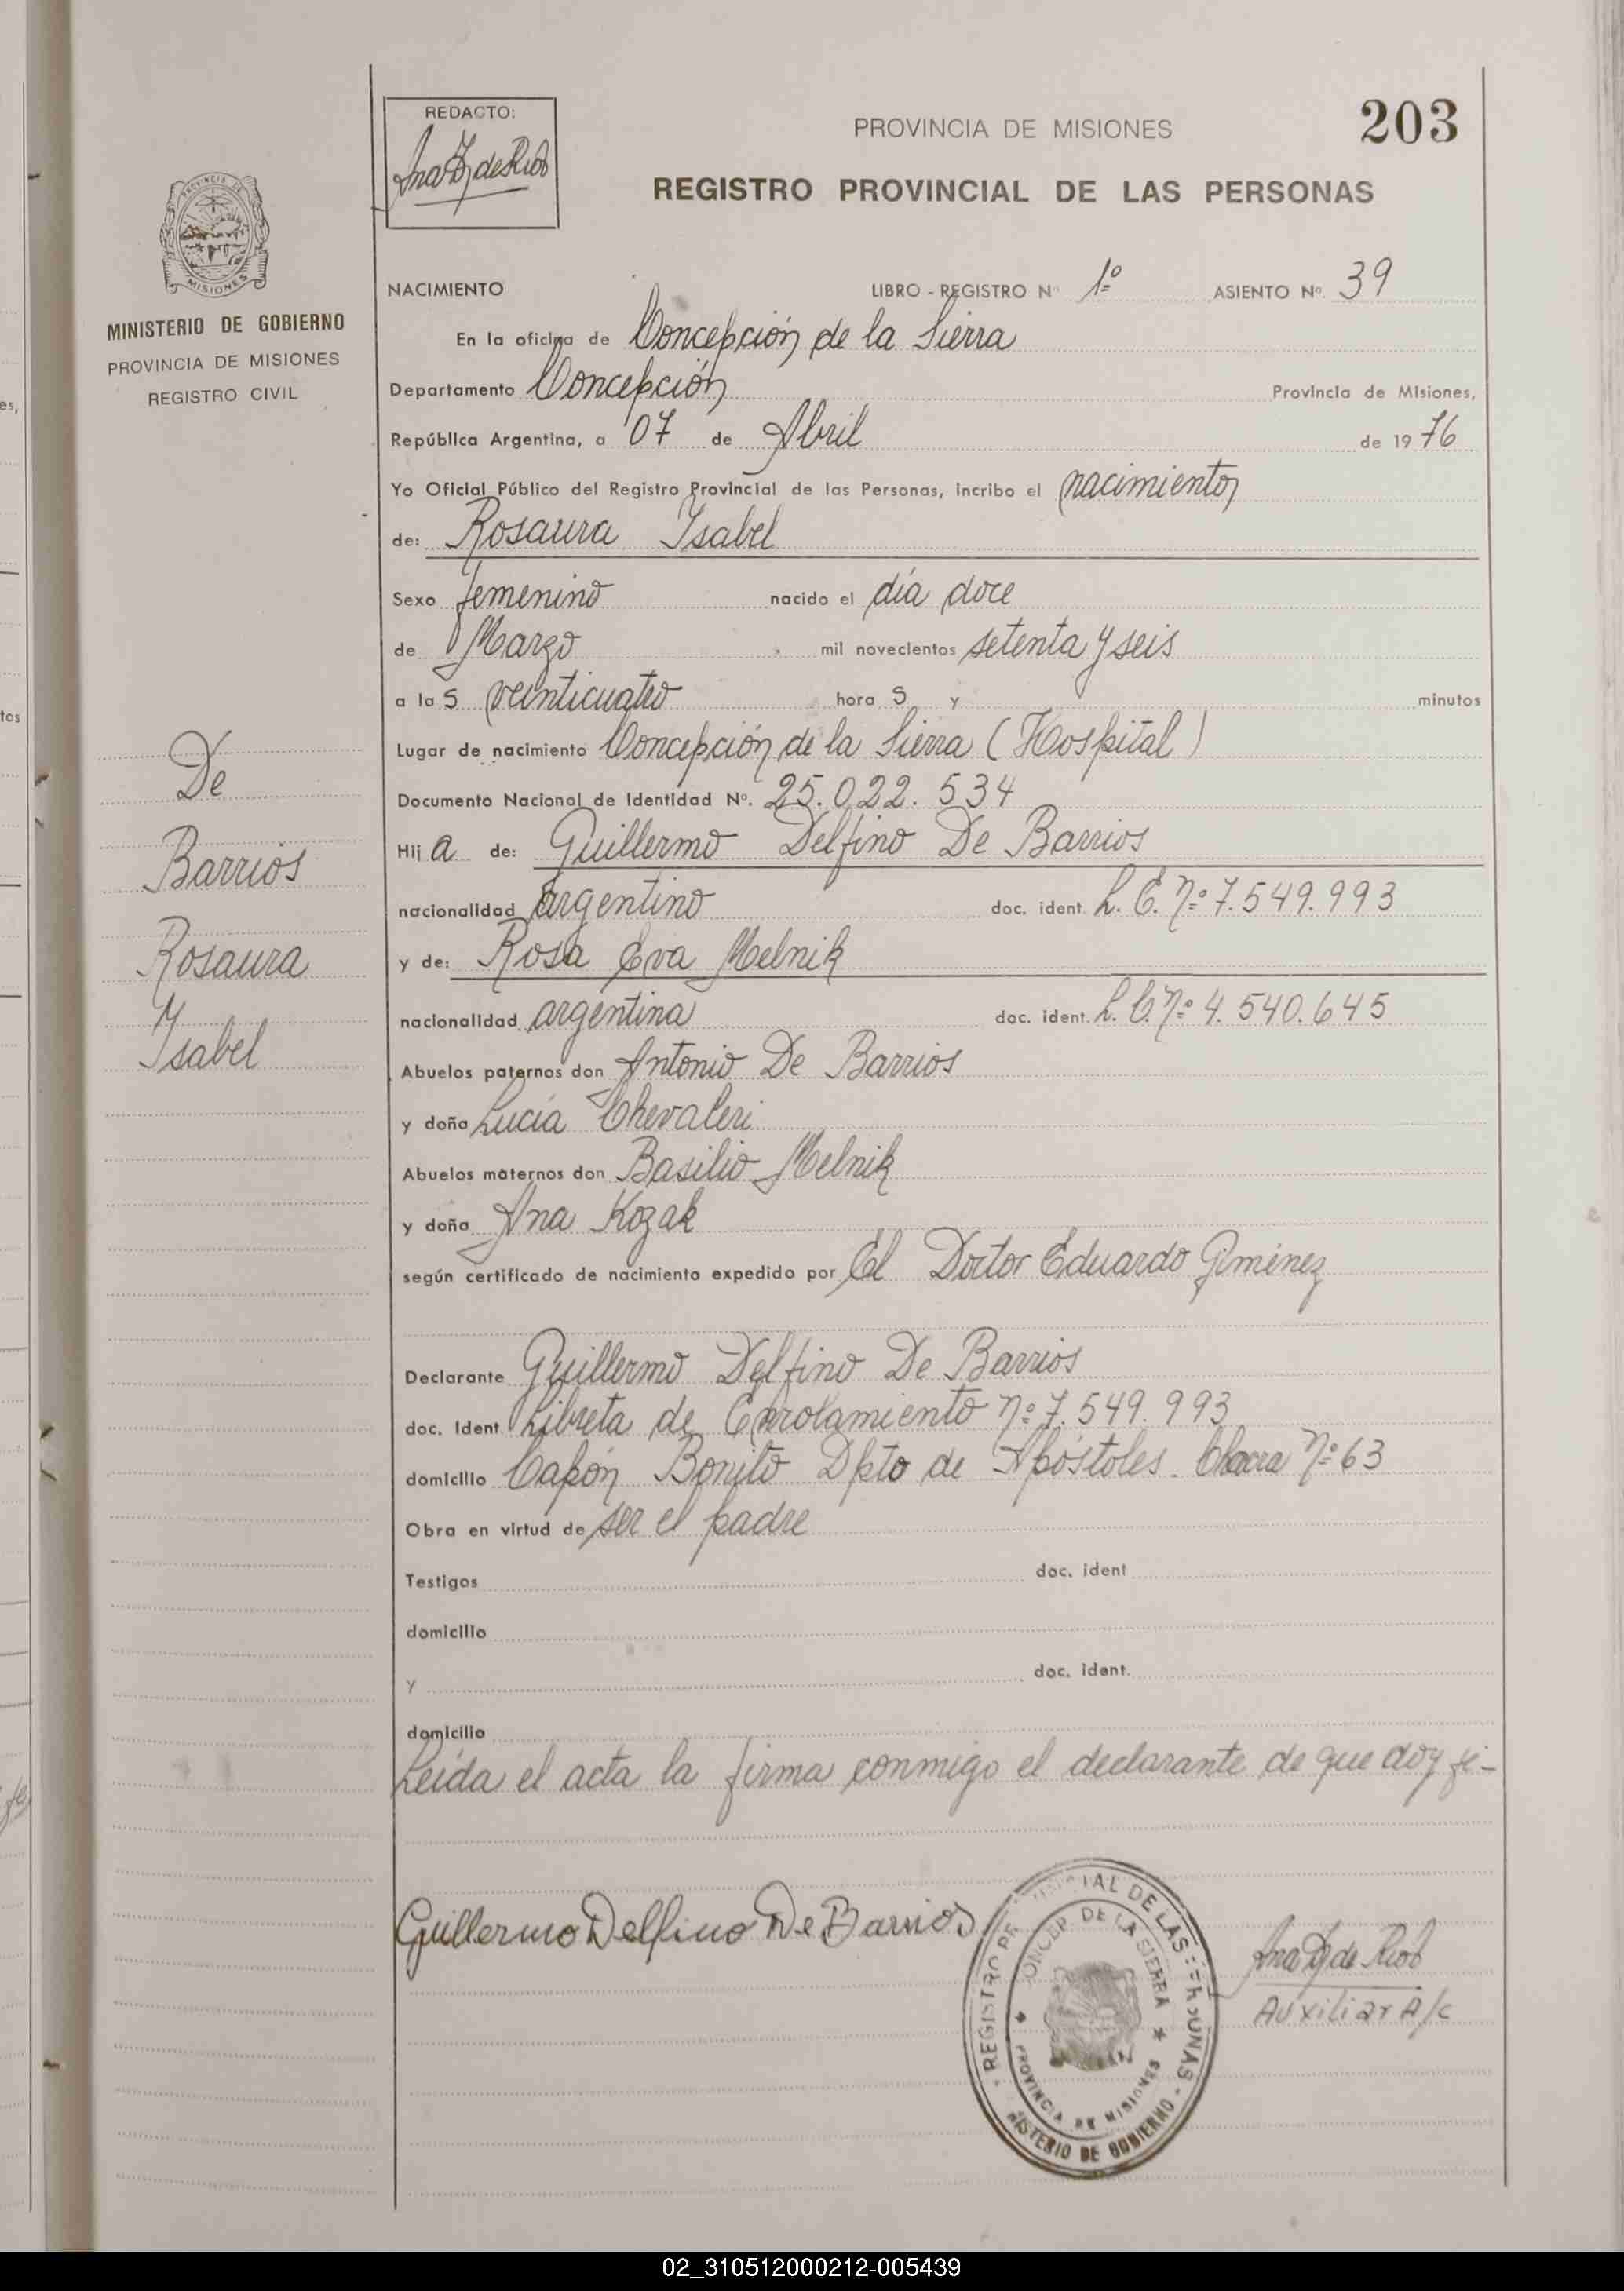 REDACTO:
Ana
de
PROVINCIA DE MISIONES
203
REGISTRO PROVINCIAL DE LAS PERSONAS
PROVINCIA DE
MISIONES
MINISTERIO DE GOBIERNO
PROVINCIA DE MISIONES
REGISTRO CIVIL
NACIMIENTO LIBRO - REGISTRO Nº 1º ASIENTO Nº. 39
En la oficina de Concepción de la Sierra
Departamento Concepción Provincia de Misiones,
República Argentina, a 07 de Abril de 1976
Yo Oficial Público del Registro Provincial de las Personas, incribo el nacimiento
de: Rosaura Ysabel
Sexo femenino nacido el día doce
de Marzo mil novecientos setenta y seis
a las veinticuatro horas y minutos
Lugar de nacimiento Concepción de la Sierra (Hospital)
Documento Nacional de Identidad Nº. 25.022.534
Hija de: Guillermo Delfino De Barrios
nacionalidad argentino doc. ident. L. E. nº 7.549.993
y de: Rosa Eva Melnik
nacionalidad argentina doc. ident. L. C. nº 4.540.645
Abuelos paternos don Antonio De Barrios
y doña Lucía Chevaleri
Abuelos maternos don Basilio Melnik
y doña Ana Kozak
según certificado de nacimiento expedido por El Doctor Eduardo Giménez
Declarante Guillermo Delfino De Barrios
doc. Ident. Libreta de Enrolamiento nº 7.549.993
domicilio Capón Bonito Dpto de Apóstoles. Chacra nº 63
Obra en virtud de ser el padre
Testigos doc. ident
domicilio
y doc. ident.
domicilio
Leída el acta la firma conmigo el declarante de que doy fé-
De
Barrios
Rosaura
Ysabel
Guillermo Delfino De Barrios
REGISTRO
DE LAS
CONCEP. DE LA SIERRA
PROVINCIA DE MISIONES
DE GOBIERNO
Ana
de
Auxiliar A/c
02_310512000212-005439